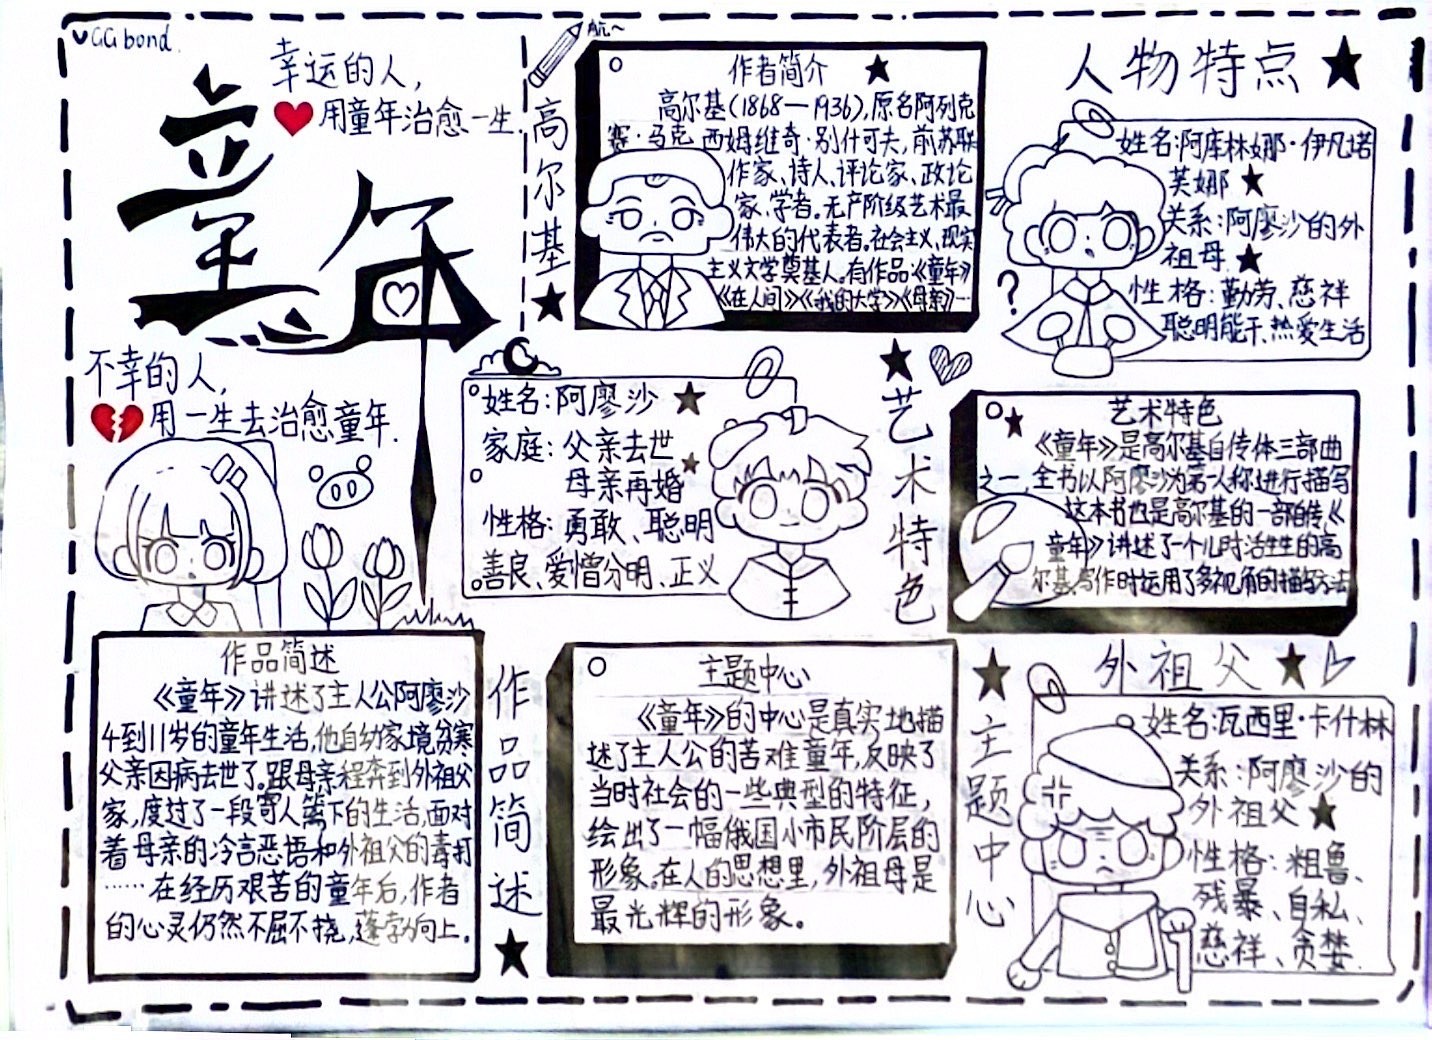 GG bond
幸运的人，
用童年治愈一生.
童年
不幸的人，
用一生去治愈童年.
高尔基
作者简介
高尔基(1868—1936),原名阿列克
赛·马克西姆维奇·别什可夫,前苏联
作家、诗人、评论家、政论
家、学者。无产阶级艺术最
伟大的代表者。社会主义、现实
主义文学奠基人。有作品《童年》
《在人间》《我的大学》《母亲》…
人物特点
姓名:阿库林娜·伊凡塔
芙娜
关系:阿廖沙的外
祖母
性格:勤劳、慈祥
聪明能干、热爱生活
?
姓名:阿廖沙
家庭:父亲去世
母亲再婚
性格:勇敢、聪明
善良、爱憎分明、正义
艺术特色
艺术特色
《童年》是高尔基自传体三部曲
之一,全书以阿廖沙为第一人称进行描写
这本书也是高尔基的一部自传,《
童年》讲述了一个儿时活生生的高
尔基,写作时运用了多视角的描写方法
作品简述
《童年》讲述了主人公阿廖沙
4到11岁的童年生活,他自幼家境贫寒
父亲因病去世了.跟母亲程奔到外祖父
家,度过了一段寄人篱下的生活,面对
着母亲的冷言恶语和外祖父的毒打
……在经历艰苦的童年后,作者
的心灵仍然不屈不挠,蓬勃向上.
作品简述
主题中心
《童年》的中心是真实地描
述了主人公的苦难童年,反映了
当时社会的一些典型的特征,
绘出了一幅俄国小市民阶层的
形象。在人的思想里,外祖母是
最光辉的形象。
主题中心
外祖父
姓名:瓦西里·卡什林
关系:阿廖沙的
外祖父
性格:粗鲁、
残暴、自私、
慈祥、贪婪.